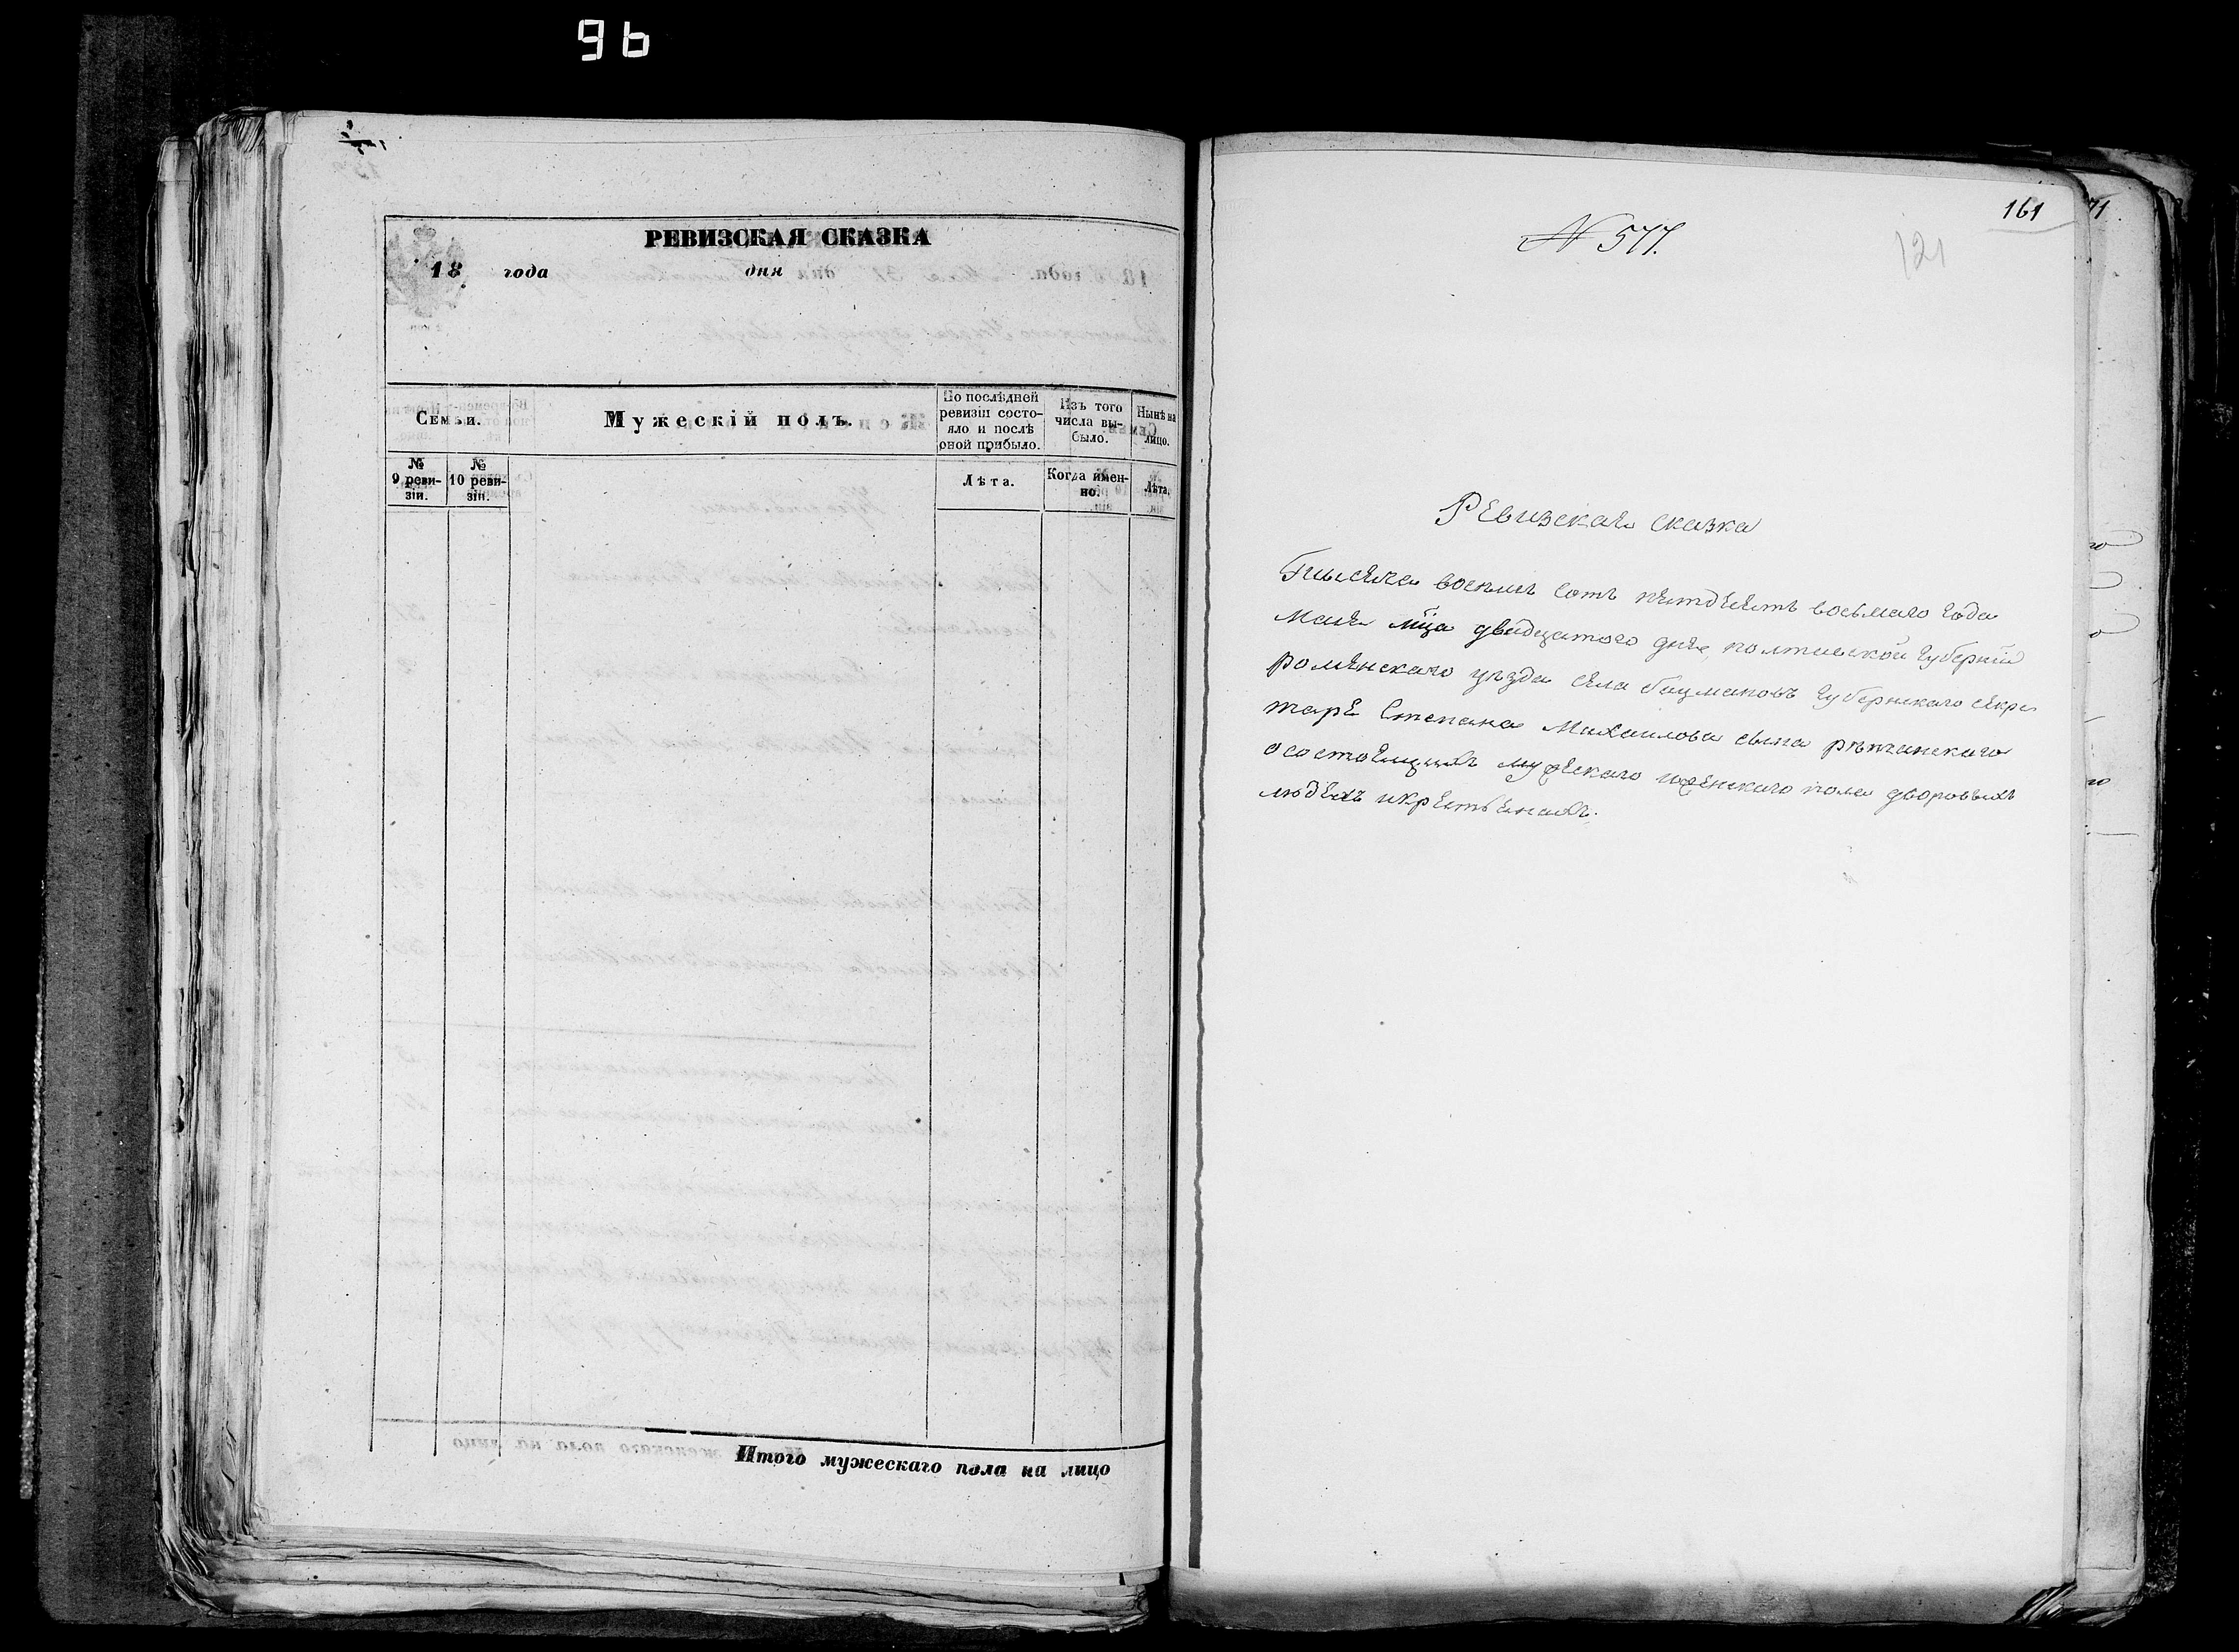 96
РЕВИЗСКАЯ СКАЗКА
18 года дня
Семьи.
Мужескій полъ.
По послѣдней ревизіи состояло и послѣ оной прибыло.
Изъ того числа выбыло.
Нынѣ на лицо.
№ 9 ревизіи.
№ 10 ревизіи.
Лѣта.
Когда именно.
Лѣта.
Итого мужескаго пола на лицо
161
71.
№ 577.
121
Ревизская сказка
Тысяча восемь сотъ пятдесятъ восьмаго года
Мая мца двадцатого дня, полтавской Губерніи
роменскаго уѣзда села Губернскаго секре
таре Степана Михаилова сына рѣпчанскаго
осостоящихъ мужескаго иженскаго пола дворовыхъ
людехъ икрестьянахъ.